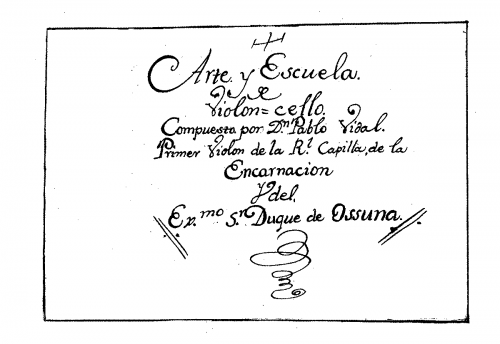 Arte y Escuela.
de
Violon=cello.
Compuesta por Dn. Pablo Vidal.
Primer Violon de la Rl. Capilla, de la
Encarnacion
y del
Ex.mo S.r Duque de Ossuna.